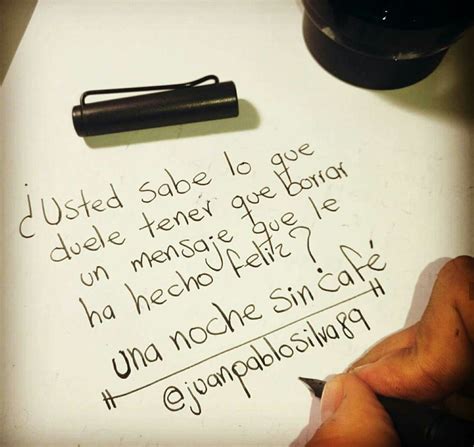 ¿Usted sabe lo que
duele tener que borrar
un mensaje que le
ha hecho feliz?
una noche sin café
@juanpablosilva89